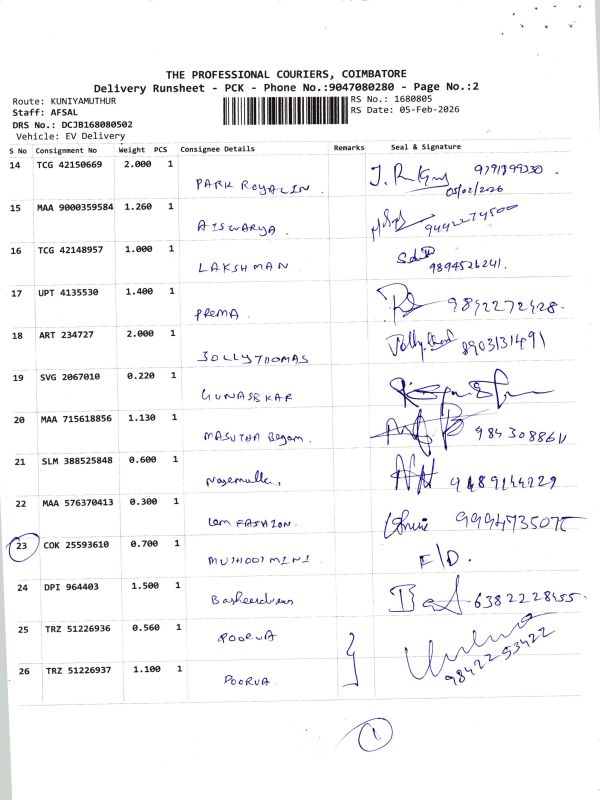 THE PROFESSIONAL COURIERS, COIMBATORE
Delivery Runsheet - PCK - Phone No.:9047080280 - Page No.:2
Route: KUNIYAMUTHUR
RS No.: 1680805
Staff: AFSAL
RS Date: 05-Feb-2026
DRS No.: DCJB168080502
Vehicle: EV Delivery
S No Consignment No Weight PCS Consignee Details Remarks Seal & Signature
14 TCG 42150669 2.000 1
PARK ROYALIN 05/02/2026
15 MAA 9000359584 1.260 1
AISWARYA. 9442274500
16 TCG 42148957 1.000 1
LAKSHMAN 9894526241.
17 UPT 4135530 1.400 1
PREMA. 9842272428.
18 ART 234727 2.000 1
JOLLYTHOMAS 8903131491
19 SVG 2067010 0.220 1
GUNASEKAR
20 MAA 715618856 1.130 1
MASUTHA Begam.
21 SLM 388525848 0.600 1
9489144229
22 MAA 576370413 0.300 1
FASHION.
23 COK 25593610 0.700 1
MUTHOOT MINI F/D.
24 DPI 964403 1.500 1
6382228455.
25 TRZ 51226936 0.560 1
POORVA
26 TRZ 51226937 1.100 1
POORVA. 9842253422
1